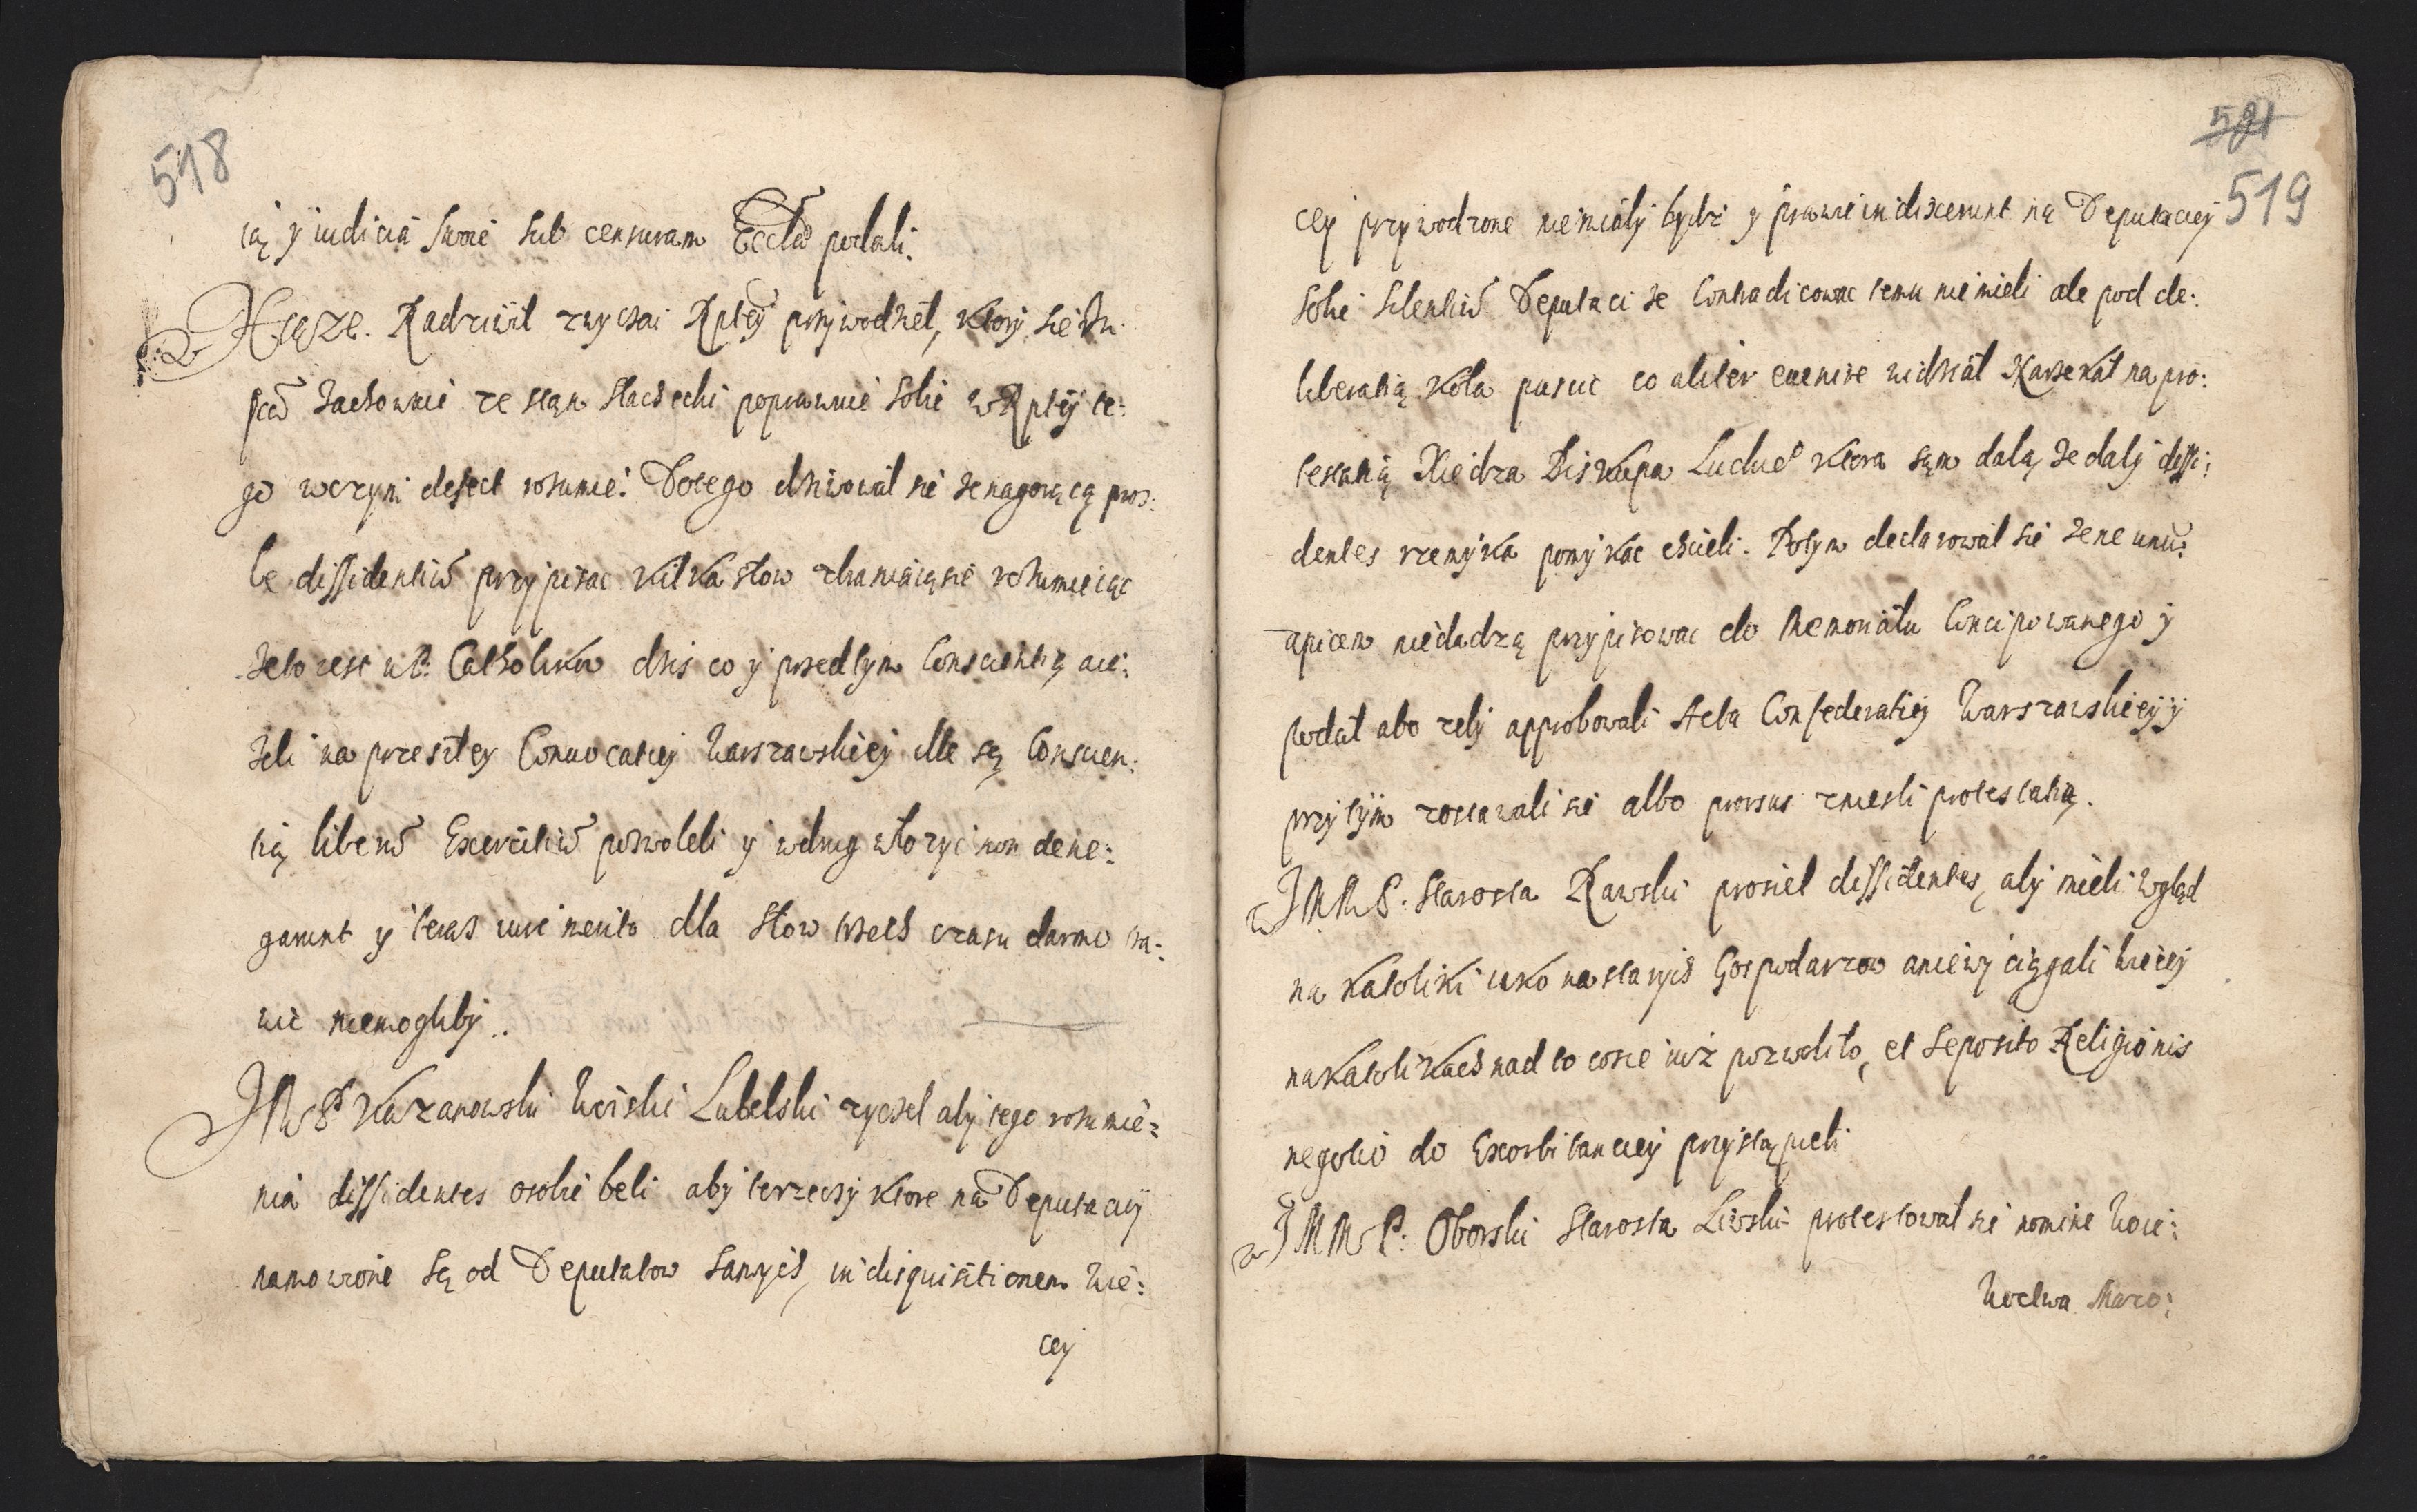 518
ią y iudicia swoie sub censuram Eccła podali.
Xiąże Radziwił zwyczai Rptey przywodzieł, ktory sie
zachowuie ze stąn slachecki poprawuie sobie w Rptey te:
go w czym defect rozumie. Do tego dziwował sie ze na gorącą proz:
be dissidentiũ przypisac kilka słow zbraniaią sie rozumieiąc
ze to iest Catholikow dzis co y przed tym Conscientią
na przeszłey Conuocatiey Warszawskiey Conscien:
tią liberũ Exercitiũ pozwoleli y w drug włozyc non dene:
garunt y teraz iure merito dla słow trzech czasu darmo
nie mogliby.
JM P Kazanowski Woiski Lubelski zyczel aby tego rozumie:
nia dissidentes o sobie beli aby te rzeczy ktore na Deputacyi
namowione są od Deputatow samych, in disquisitionem wie:
cey
521
519
cey przywodzone nie miały bydz y prawie indixerunt na Deputaciey
sobie silentiũ Deputaci ze Contradicowac temu nie mieli ale pod de:
liberatią koła puscic co aliter euenire widział Marszał
testatią Xiedza Biskupa ktora sąm dał, ze dali dissi:
dentes rzemyka pomykac chcieli. Potym declarował sie ze ne unũ
apicem nie dadzą przypisowac do Memoriału Concipowanego y
podał abo zeby approbowali Acta Confederatiey Warszawskiey y
przy tym zostawali sie albo prorsus zniesli protestatią.
JM M P. Starosta Rawski prosieł dissidentes, aby mieli wgląd
na katoliki iako na starych Gospodarzow a nie wyciągali wiecey
na katolikach nad to co sie iuż pozwoliło, et seposito Religionis
negotio do Exorbitanciey przystąpieli
JM M P. Oborski Starosta Liwski protestował sie nomine Woie:
Woctwa Mazo: